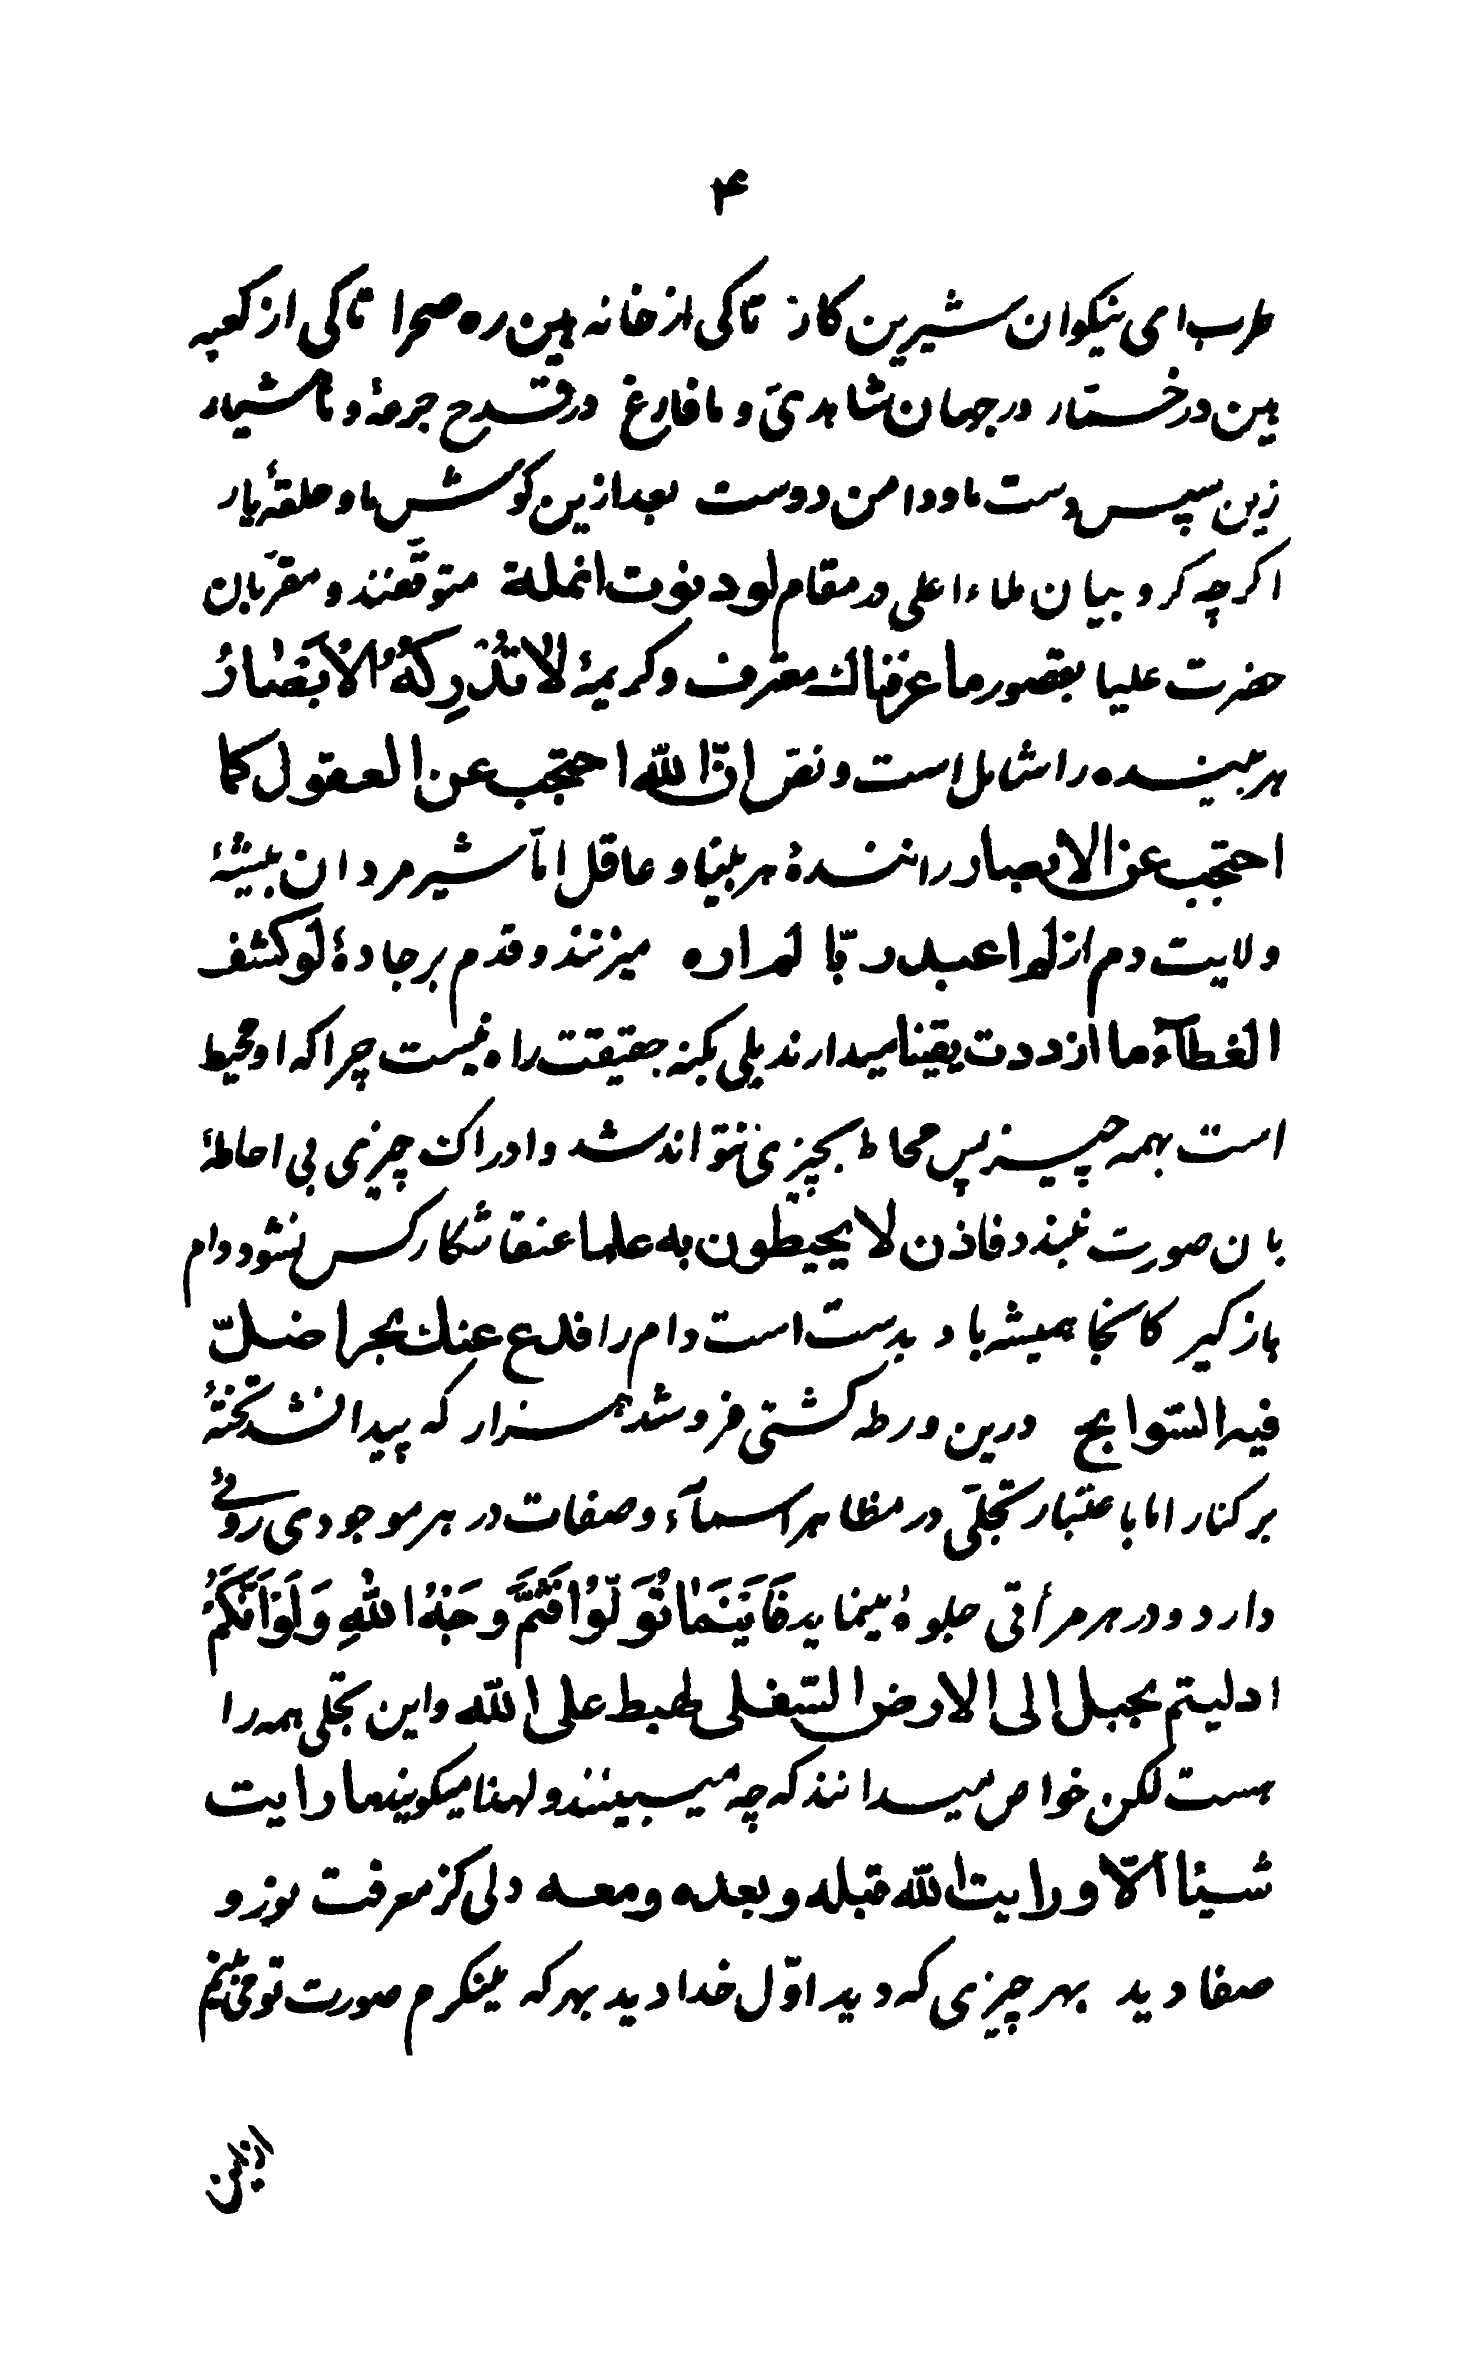 ۴
طرب ای نیکوان شیرین کار تاکی از خانه هین ره صحرا تاکی از کعبه
هین در خمار در جهان شاهدی و ما فارغ در قدح جرعهٔ و ما هشیار
زین سپس دست ما و دامن دوست بعد ازین کوش ما و حلقهٔ یار
اکرچه کروبیان ملاء اعلی در مقام لو دنوت انملة متوقّفند و مقرّبان
حضرت علیا بقصور ما عرفناك معترف و کریمهٔ لَا تُدْرِكُهُ الْاَبْصَارُ
هر بیننده را شامل است و نصّ انّ الله احتجب عن العقول کما
احتجب عن الابصار رانندهٔ هر بینا و عاقل امّا شیر مردان بیشهٔ
ولایت دم از لم اعبد ربّا لم اره میزنند و قدم بر جادهٔ لو کشف
الغطآء ما ازددت یقینا میدارند بلی بکنه حقیقت راه نیست چرا که او محیط
است بهمه چیز پس محاط بچیزی نتواند شد و ادراك چیزی بی احاطهٔ
بان صورت نبندد فاذن لا یحیطون به علما عنقا شکار کس نشود دام
باز کیر کانجا همیشه باد بدست است دام را فدع عنك بحرا ضلّ
فیه السّوابح درین ورطه کشتی فرو شد هزار که پیدا نشد تختهٔ
بر کنار اما باعتبار تجلّی در مظاهر اسمآء و صفات در هر موجودی روئی
دارد و در هر مرأتی جلوهٔ مینماید فَاَیْنَمَا تُوَلُّوْا فَثَمَّ وَجْهُ اللهِ وَلَوْ اَنَّکُمْ
ادلیتم بحبل الی الارض السّفلی لهبط علی الله و این تجلّی همه را
هست لکن خواص میدانند که چه میبینند و لهذا میکویند ما رایت
شیئا الّا و رایت الله قبله و بعده و معه دلی کز معرفت نور و
صفا دید بهر چیزی که دید اوّل خدا دید بهر که مینکرم صورت تو می بینم
ازین